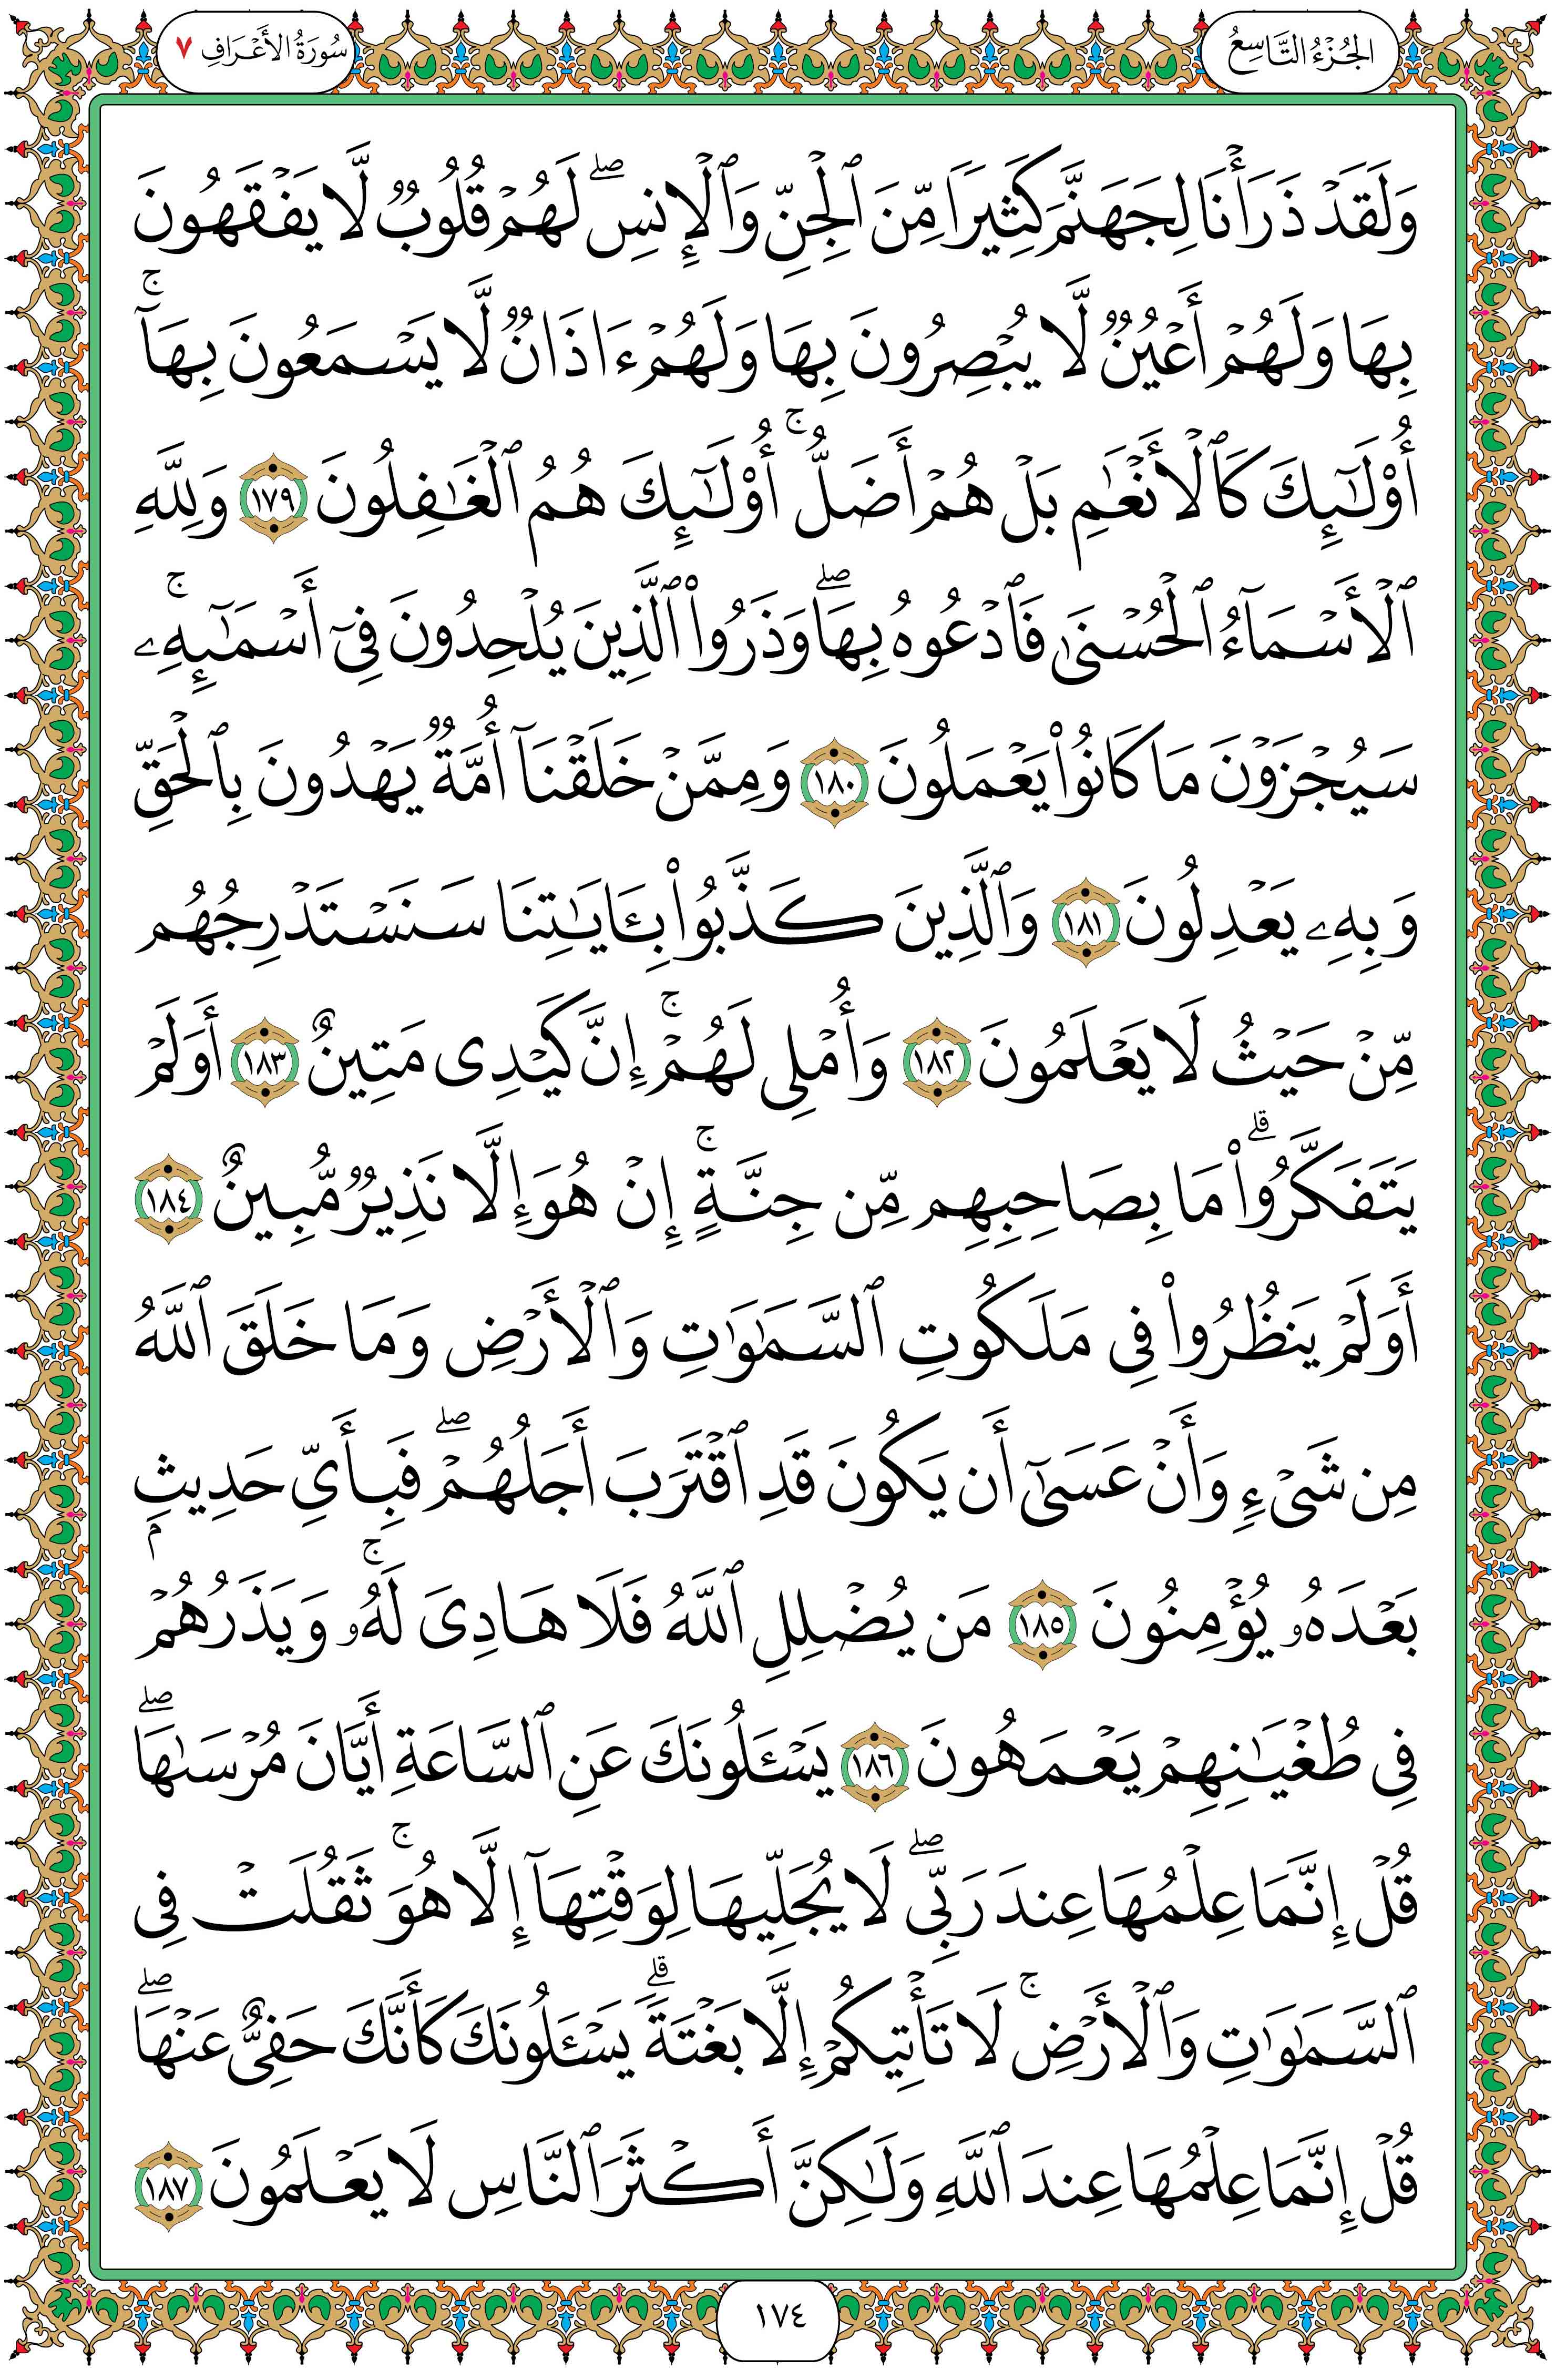 الجُزْءُ التَّاسِعُ
سُورَةُ الأَعْرَافِ ٧
وَلَقَدْ ذَرَأْنَا لِجَهَنَّمَ كَثِيرًا مِّنَ ٱلْجِنِّ وَٱلْإِنسِ ۖ لَهُمْ قُلُوبٌ لَّا يَفْقَهُونَ
بِهَا وَلَهُمْ أَعْيُنٌ لَّا يُبْصِرُونَ بِهَا وَلَهُمْ ءَاذَانٌ لَّا يَسْمَعُونَ بِهَآ ۚ
أُو۟لَٰٓئِكَ كَٱلْأَنْعَٰمِ بَلْ هُمْ أَضَلُّ ۚ أُو۟لَٰٓئِكَ هُمُ ٱلْغَٰفِلُونَ ١٧٩ وَلِلَّهِ
ٱلْأَسْمَآءُ ٱلْحُسْنَىٰ فَٱدْعُوهُ بِهَا ۖ وَذَرُوا۟ ٱلَّذِينَ يُلْحِدُونَ فِىٓ أَسْمَٰٓئِهِۦ ۚ
سَيُجْزَوْنَ مَا كَانُوا۟ يَعْمَلُونَ ١٨٠ وَمِمَّنْ خَلَقْنَآ أُمَّةٌ يَهْدُونَ بِٱلْحَقِّ
وَبِهِۦ يَعْدِلُونَ ١٨١ وَٱلَّذِينَ كَذَّبُوا۟ بِـَٔايَٰتِنَا سَنَسْتَدْرِجُهُم
مِّنْ حَيْثُ لَا يَعْلَمُونَ ١٨٢ وَأُمْلِى لَهُمْ ۚ إِنَّ كَيْدِى مَتِينٌ ١٨٣ أَوَلَمْ
يَتَفَكَّرُوا۟ ۗ مَا بِصَاحِبِهِم مِّن جِنَّةٍ ۚ إِنْ هُوَ إِلَّا نَذِيرٌ مُّبِينٌ ١٨٤
أَوَلَمْ يَنظُرُوا۟ فِى مَلَكُوتِ ٱلسَّمَٰوَٰتِ وَٱلْأَرْضِ وَمَا خَلَقَ ٱللَّهُ
مِن شَىْءٍ وَأَنْ عَسَىٰٓ أَن يَكُونَ قَدِ ٱقْتَرَبَ أَجَلُهُمْ ۖ فَبِأَىِّ حَدِيثٍۭ
بَعْدَهُۥ يُؤْمِنُونَ ١٨٥ مَن يُضْلِلِ ٱللَّهُ فَلَا هَادِىَ لَهُۥ ۚ وَيَذَرُهُمْ
فِى طُغْيَٰنِهِمْ يَعْمَهُونَ ١٨٦ يَسْـَٔلُونَكَ عَنِ ٱلسَّاعَةِ أَيَّانَ مُرْسَىٰهَا ۖ
قُلْ إِنَّمَا عِلْمُهَا عِندَ رَبِّى ۖ لَا يُجَلِّيهَا لِوَقْتِهَآ إِلَّا هُوَ ۚ ثَقُلَتْ فِى
ٱلسَّمَٰوَٰتِ وَٱلْأَرْضِ ۚ لَا تَأْتِيكُمْ إِلَّا بَغْتَةً ۗ يَسْـَٔلُونَكَ كَأَنَّكَ حَفِىٌّ عَنْهَا ۖ
قُلْ إِنَّمَا عِلْمُهَا عِندَ ٱللَّهِ وَلَٰكِنَّ أَكْثَرَ ٱلنَّاسِ لَا يَعْلَمُونَ ١٨٧
١٧٤